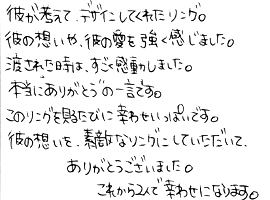 彼が考えて、デザインしてくれたリング。
彼の想いや、彼の愛を強く感じました。
渡された時は、すごく感動しました。
本当にありがとうの一言です。
このリングを見るたびに幸せいっぱいです。
彼の想いを、素敵なリングにしていただいて、
ありがとうございました。
これから2人で幸せになります。